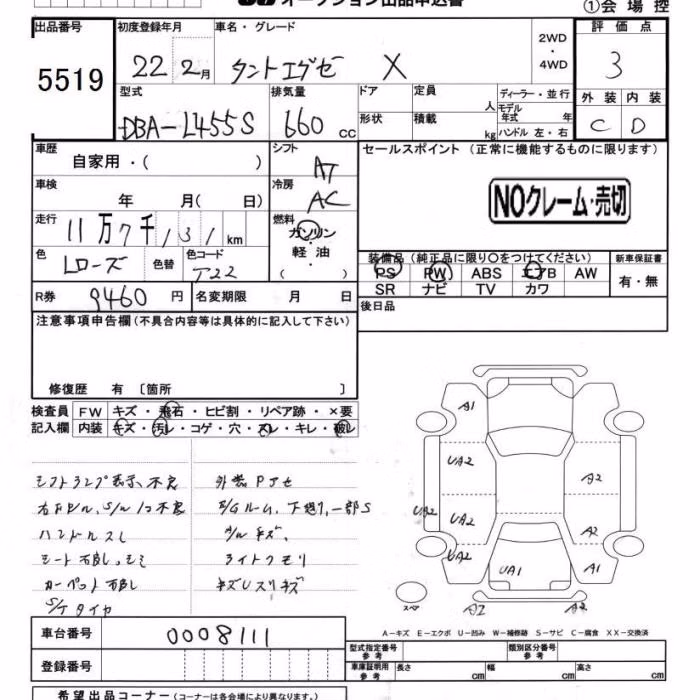 オークション出品申込書
①会場控
出品番号 初度登録年月 車名・グレード 2WD・4WD 評価点
5519 22年 2月 タントエグゼ X 3
型式 排気量 ドア 定員 人 ディーラー・並行 外装 内装
DBA-L455S 660cc 形状 積載 kg モデル年式 年 ハンドル 左・右 C D
車歴 自家用・( ) シフト AT セールスポイント (正常に機能するものに限ります)
車検 年 月( 日) 冷房 AC
NOクレーム・売切
走行 11万7千131km 燃料 ガソリン・軽油 ( )
色 Lローズ 色替 色コード T22
装備品(純正品に限り○をつけてください) 新車保証書
PS PW ABS エアB AW 有・無
SR ナビ TV カワ
R券 9460円 名変期限 月 日 後日品
注意事項申告欄(不具合内容等は具体的に記入して下さい)
修復歴 有 〔箇所 〕
検査員 FW キズ・飛石・ヒビ割・リペア跡・×要
記入欄 内装 キズ・汚レ・コゲ・穴・スレ・キレ・破レ
シフトランプ表示不良
ハンドルスレ
S/Tタイヤ
外装Pアセ
E/Gルーム、下廻り、一部S
A/Wキズ、
ライトクモリ
A1
UA2 A2
UA2 UA2 A2
UA2 UA1 A1
スペア A2 A2
A-キズ E-エクボ U-凹み W-補修跡 S-サビ C-腐食 XX-交換済
車台番号 0008111
登録番号
型式指定番号 参考 類別区分番号 参考
車庫証明用 参考 長さ cm 幅 cm 高さ cm
希望出品コーナー(コーナーは各会場により異なります。)